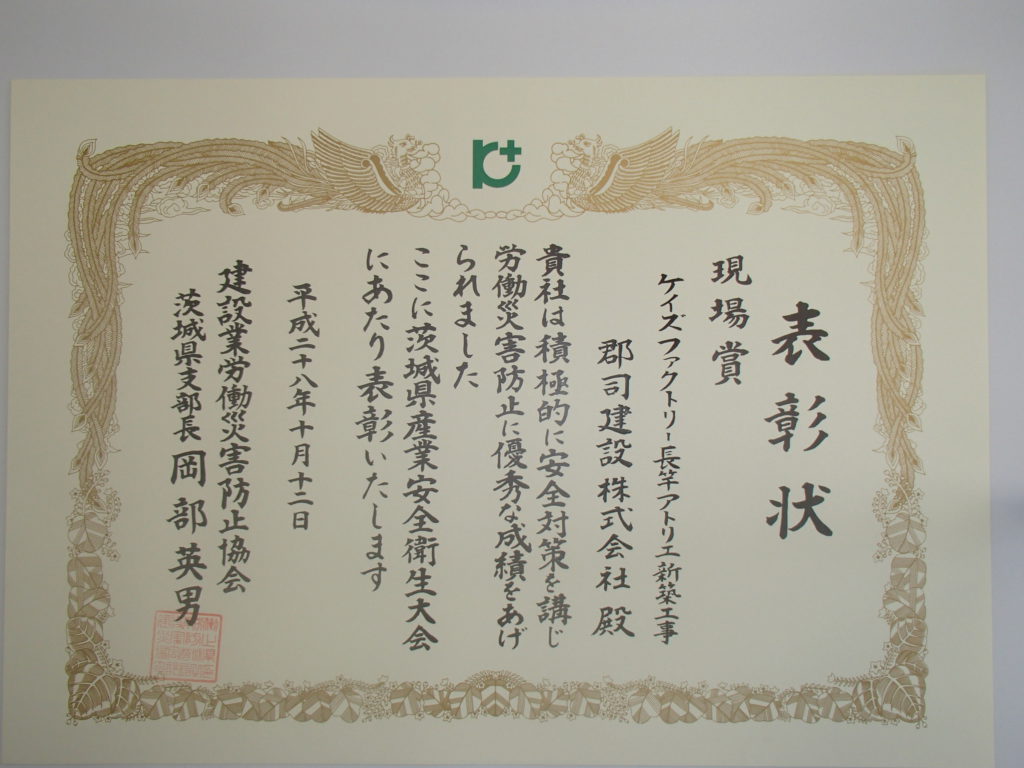 表彰状
現場賞
ケイズファクトリー長竿アトリエ新築工事
郡司建設株式会社 殿
貴社は積極的に安全対策を講じ
労働災害防止に優秀な成績をあげ
られました
ここに茨城県産業安全衛生大会
にあたり表彰いたします
平成二十八年十月十二日
建設業労働災害防止協会
茨城県支部長 岡部英男